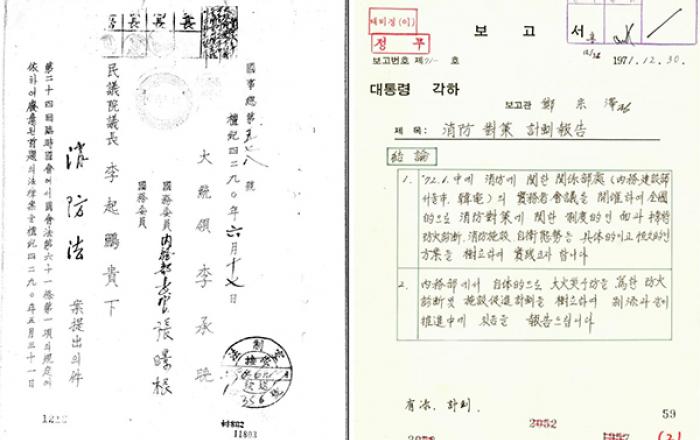 國事總第五七八號
檀紀四二九〇年六月十七日
大統領 李承晩
國務委員 內務部長官 張暻根
國務委員
民議院議長 李起鵬 貴下
消防法 案提出의件
第二十四回臨時國會에서國會法第六十一條第一項의規定에
依하여廢棄된首題의法律案을檀紀四二九〇年五月三十一日
法制室
356
11803
대비경(이)
정무
보고서
보고번호 제71- 호
1971.12.30.
대통령 각하
보고관 鄭宗澤
제목: 消防對策 計劃報告
結論
1. '72.1.中에 消防에 關한 關係部處(內務·建設部
서울市, 韓電)의 實務者會議를 開催하여 全國
的으로 消防對策에 關한 制度的인 面과
防火診斷, 消防施設, 自衛態勢等 具体的이고
方案을 樹立하여 實踐코자 합니다
2. 內務部에서 自体的으로 大火災予防을 爲한 防火
診斷 및 施設促進計劃을 樹立하여 別添과 같이
推進中에 있음을 報告드립니다
有添. 計劃.
59
2052